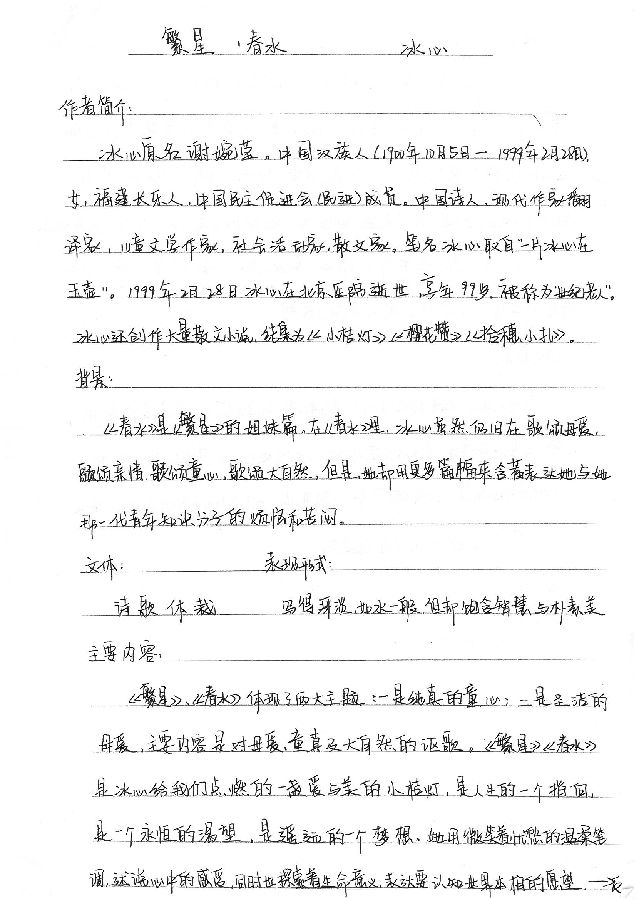 繁星·春水 冰心
作者简介:
冰心原名谢婉莹。中国汉族人(1900年10月5日—1999年2月28日),
女,福建长乐人,中国民主促进会(民进)成员。中国诗人,现代作家,翻
译家,儿童文学作家,社会活动家,散文家。笔名冰心取自“一片冰心在
玉壶”。1999年2月28日冰心在北京医院逝世,享年99岁,被称为“世纪老人”。
冰心还创作大量散文小说,结集为《小桔灯》《樱花赞》《拾穗小扎》。
背景:
《春水》是《繁星》的姐妹篇。在《春水》里,冰心虽然仍旧在歌颂母爱,
歌颂亲情,歌颂童心,歌颂大自然,但是,她却用更多篇幅来含蓄表达她与她
那一代青年知识分子的烦恼和苦闷。
文体: 表现形式:
诗歌体裁 写得平淡,如水一般,但却饱含智慧与朴素美
主要内容:
《繁星》、《春水》体现了两大主题:一是纯真的童心;二是圣洁的
母爱,主要内容是对母爱,童真及大自然的讴歌。《繁星》《春水》
是冰心给我们点燃的一盏爱与美的小桔灯,是人生的一个指向,
是一个永恒的渴望,是遥远的一个梦想。她用微笑着忧愁的温柔笔
调,述说心中的感受,同时也探索着生命意义,表达要认知世界本相的愿望。